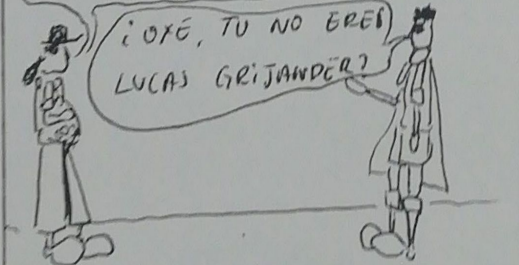 ¡OYE, TU NO ERES
LUCAS GRIJANDER?